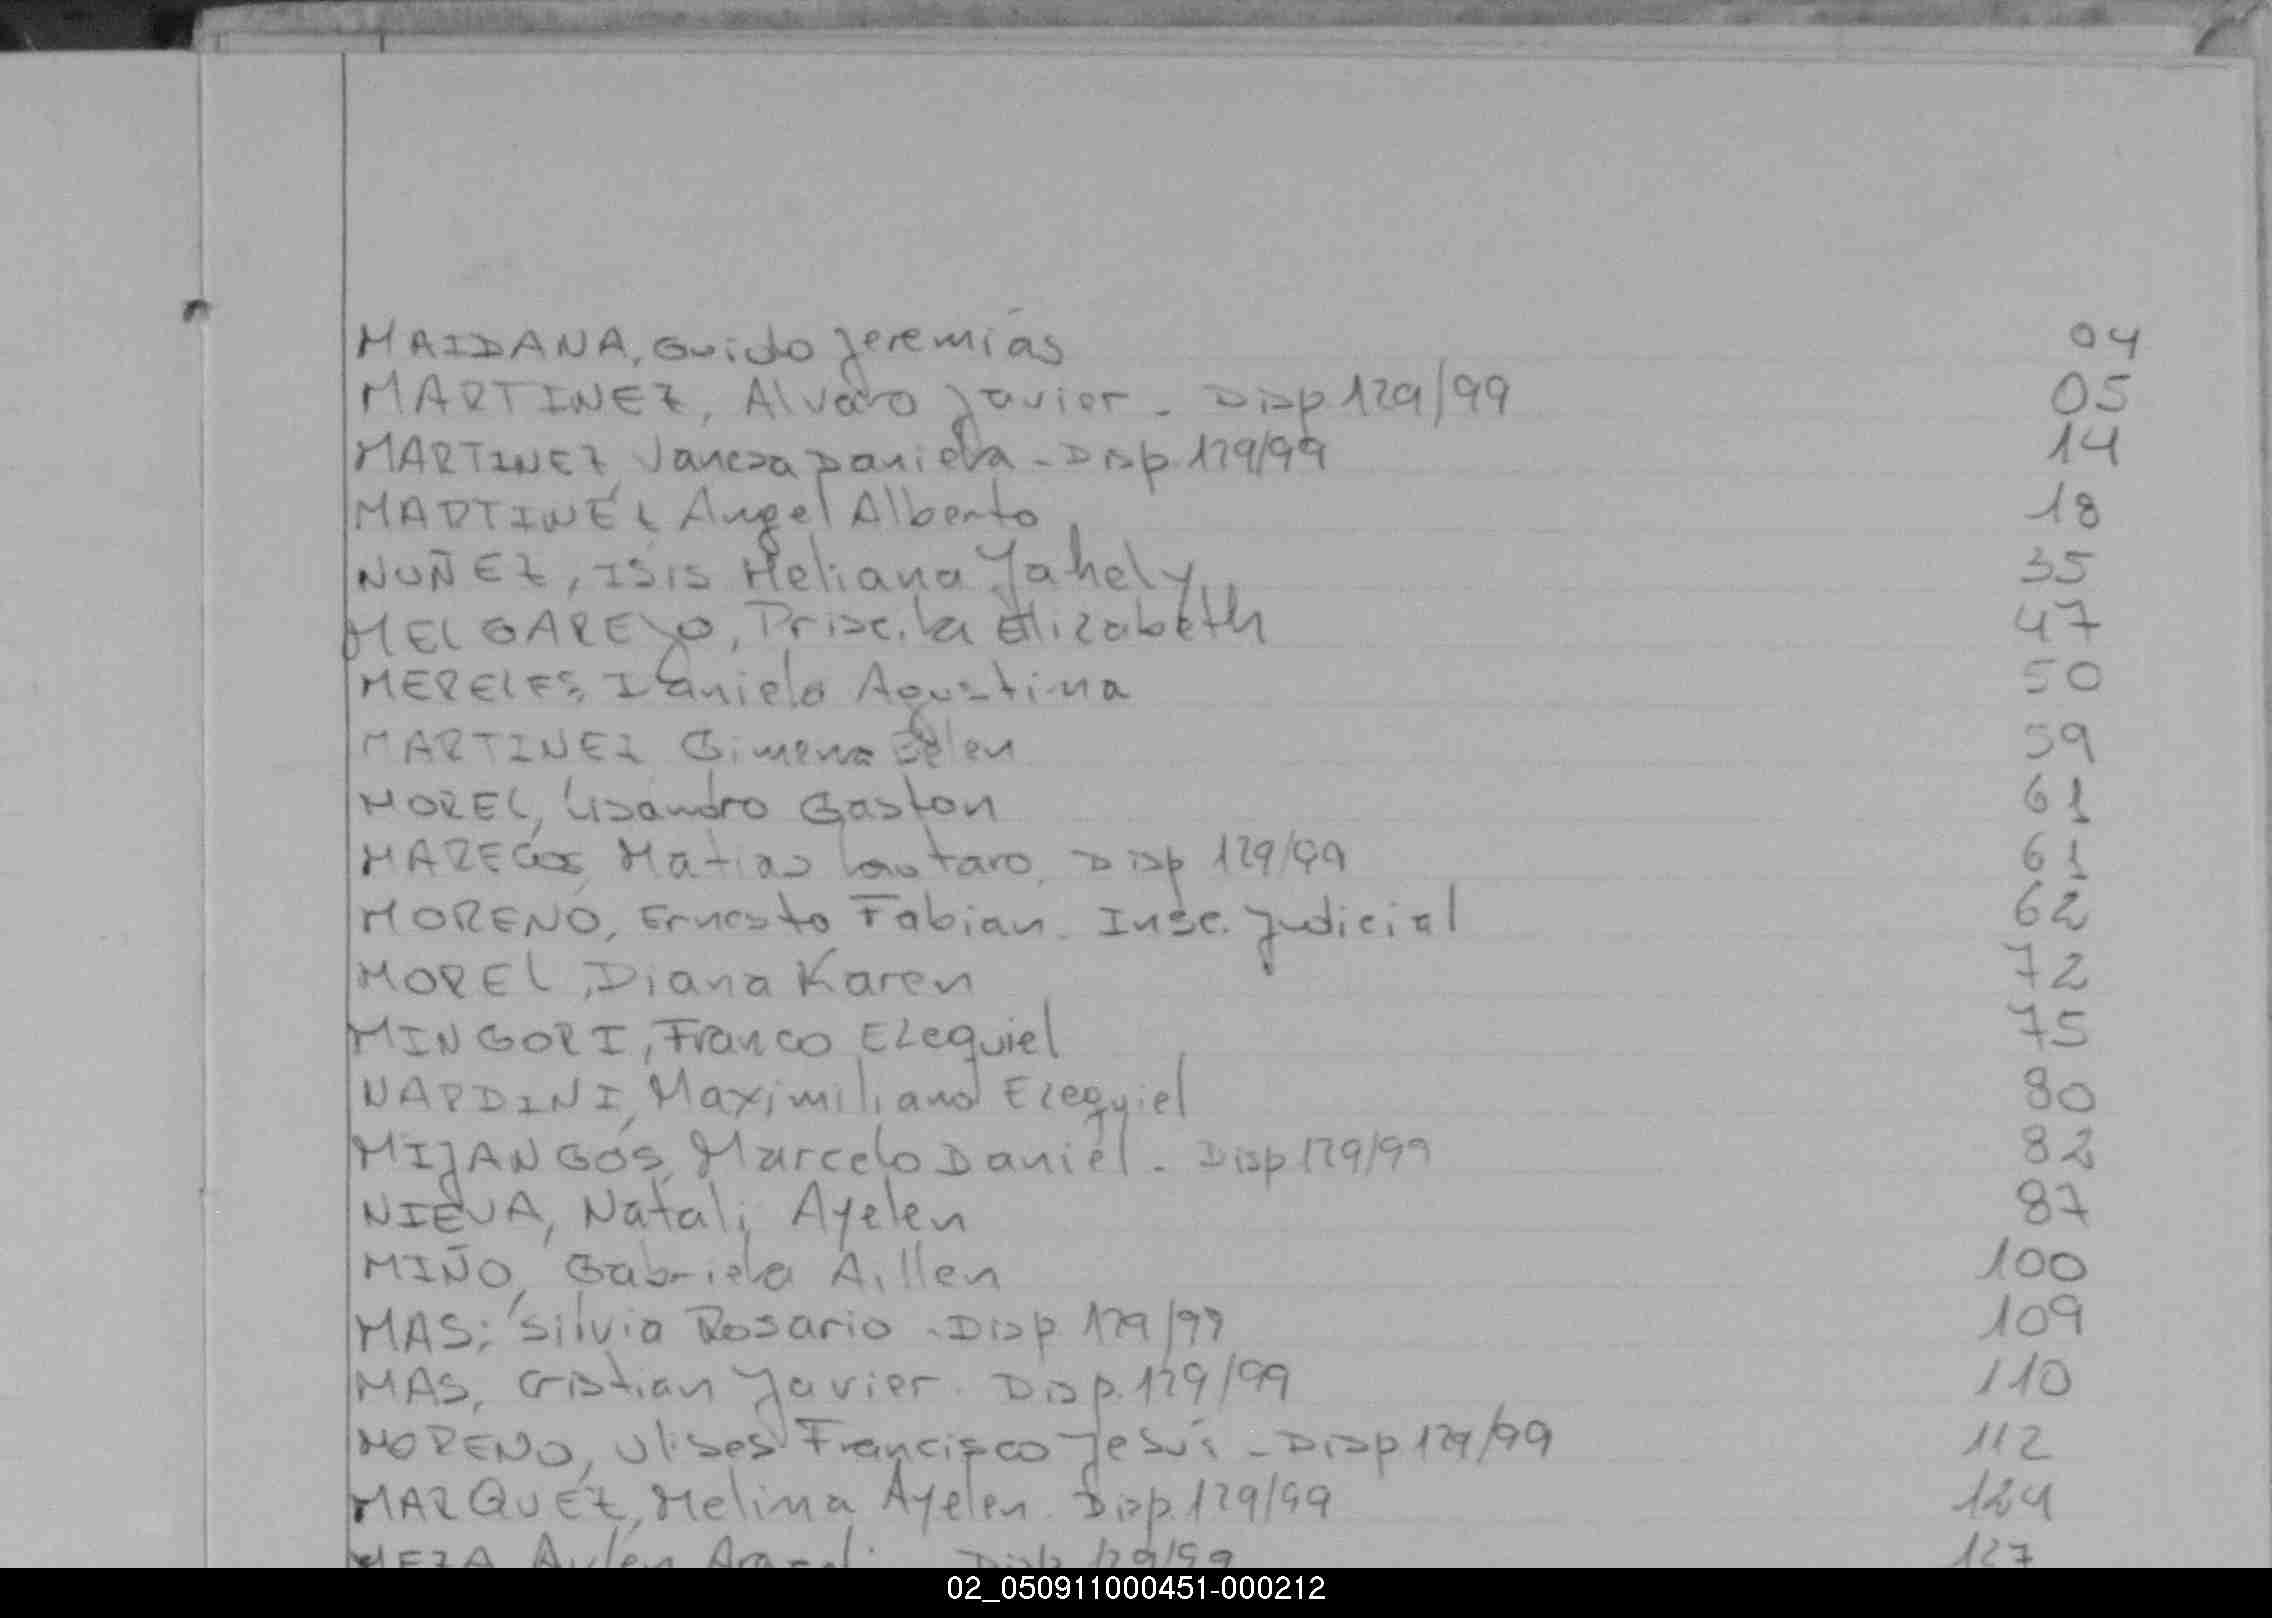 MAIDANA, Guido Jeremías 04
MARTINEZ, Alvaro Javier - Disp 129/99 05
MARTINEZ, Vanesa Daniela - Disp. 129/99 14
MARTINEZ, Angel Alberto 18
NUÑEZ, ISIS Heliana Yahely 35
MELGAREJO, Priscila Elizabeth 47
MERELES, Daniela Agustina 50
MARTINEZ Gimena Belen 59
MOREL, Lisandro Gaston 61
MARECOS, Matias Lautaro. Disp 129/99 61
MORENO, Ernesto Fabian. Insc. Judicial 62
MOREL, Diana Karen 72
MINGORI, Franco Ezequiel 75
NARDINI, Maximiliano Ezequiel 80
MIJANGOS, Marcelo Daniel. Disp 129/99 82
NIEVA, Natali Ayelen 87
MIÑO, Gabriela Aillen 100
MAS; Silvia Rosario - Disp 129/99 109
MAS, Cristian Javier. Disp. 129/99 110
MORENO, Ulises Francisco Jesús - Disp 129/99 112
MARQUEZ, Melina Ayelen. Disp. 129/99 124
MEZA Disp 129/99 127
02_050911000451-000212